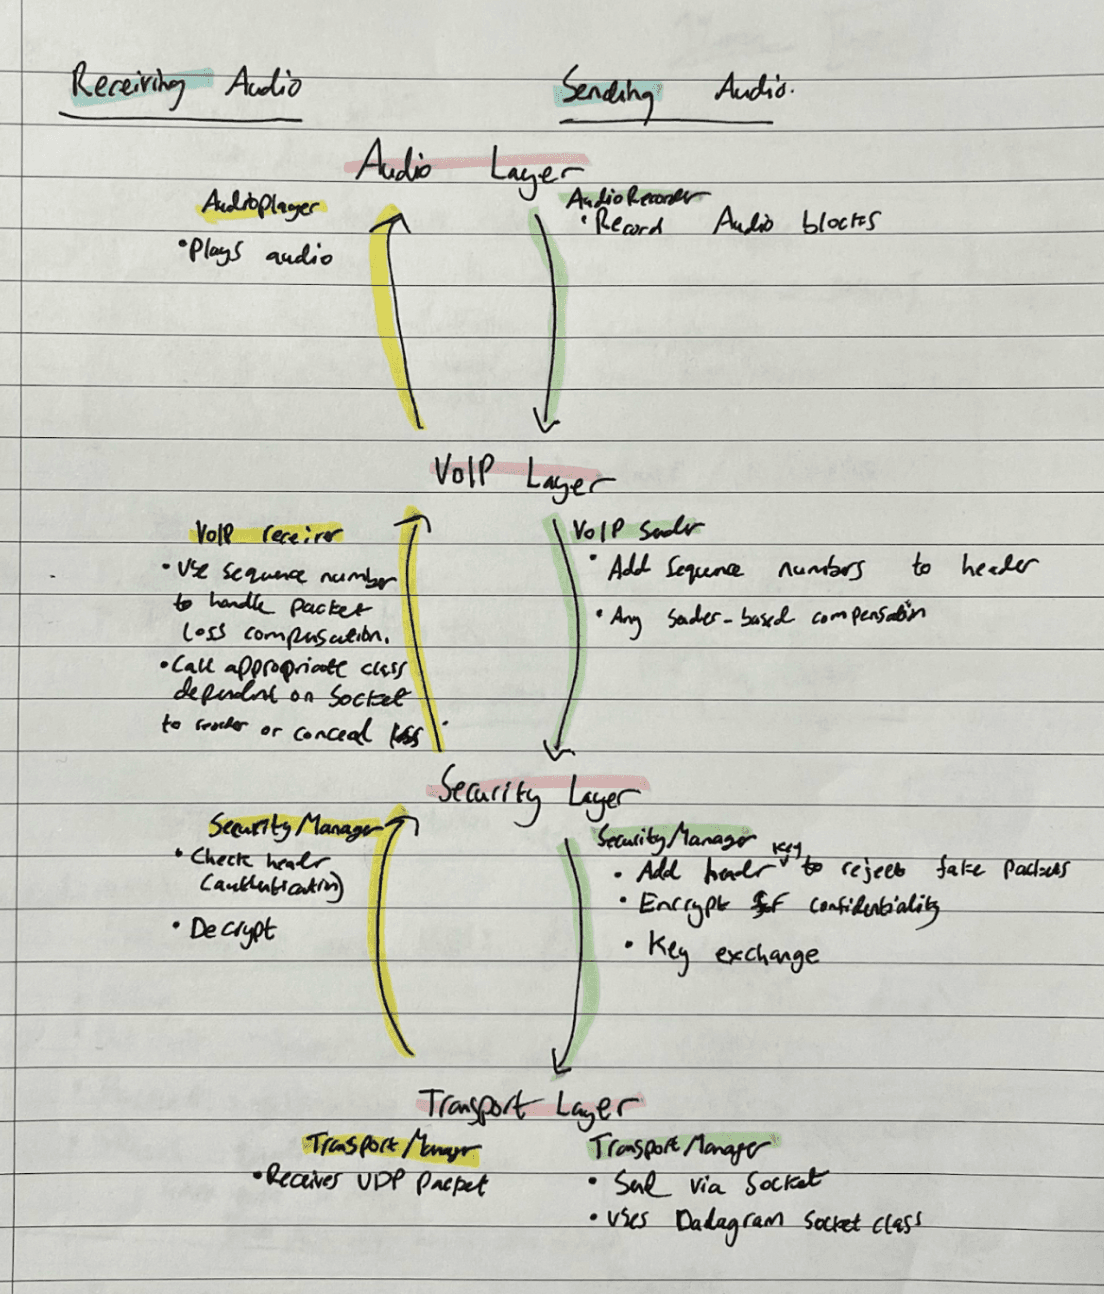 Receiving Audio
Sending Audio.
Audio Layer
AudioPlayer
• Plays audio
AudioRecorder
• Record Audio blocks
VoIP Layer
VoIP receiver
• Use sequence number
to handle packet
loss compensation.
• Call appropriate class
dependent on Socket
to or conceal loss
VoIP Sender
• Add sequence numbers to header
• Any sender-based compensation
Security Layer
Security Manager
• Check header
(authentication)
• Decrypt
Security Manager
• Add header key to reject fake packets
• Encrypt confidentiality
• Key exchange
Transport Layer
Transport Manager
• Receives UDP Packet
Transport Manager
• Send via Socket
• Uses Dadagram Socket class